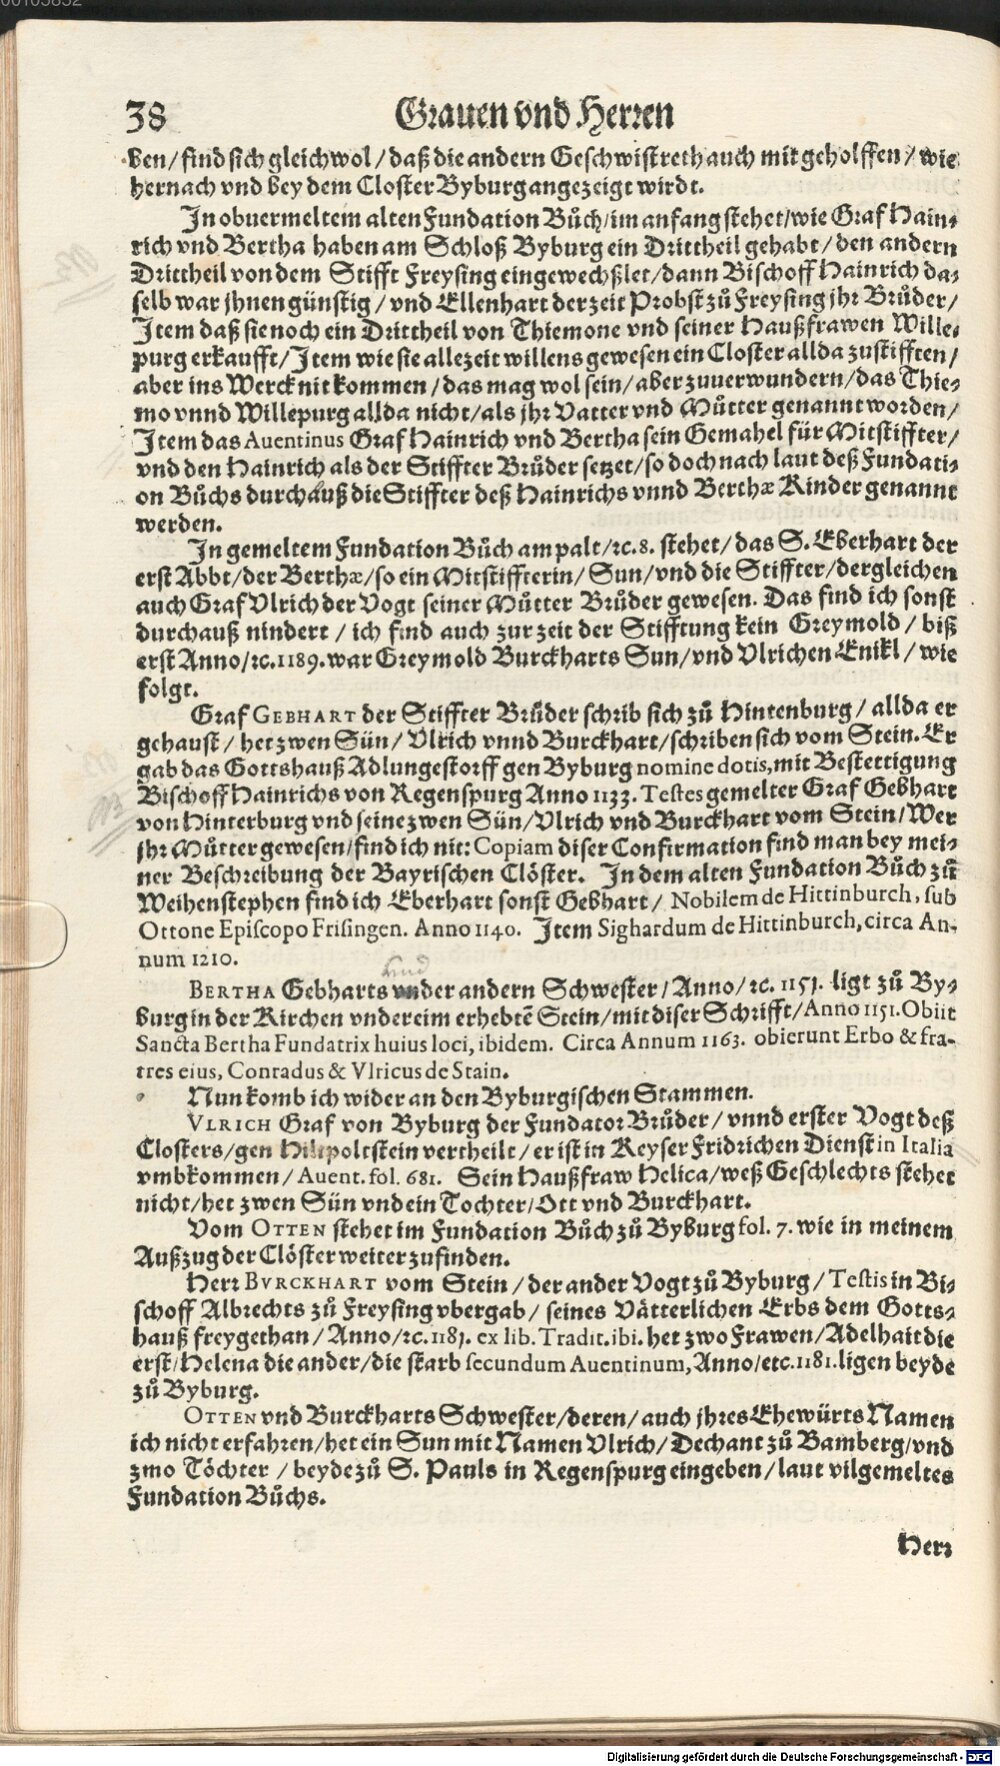 00103832
38 Grauen vnd Herren
ben/ find sich gleichwol/ daß die andern Geschwistreth auch mit geholffen/ wie
hernach vnd bey dem Closter Byburg angezeigt wirdt.
In obuermeltem alten Fundation Bůch/ im anfang stehet/ wie Graf Hain-
rich vnd Bertha haben am Schloß Byburg ein Drittheil gehabt/ den andern
Drittheil von dem Stifft Freysing eingewechßlet/ dann Bischoff Hainrich da-
selb war jhnen günstig/ vnd Ellenhart der zeit Probst zů Freysing jhr Brůder/
Item daß sie noch ein Drittheil von Thiemone vnd seiner Haußfrawen Wille-
purg erkaufft/ Item wie sie allezeit willens gewesen ein Closter allda zustifften/
aber ins Werck nit kommen/ das mag wol sein/ aber zuuerwundern/ das Thie-
mo vnnd Willepurg allda nicht/ als jhr Vatter vnd Můtter genannt worden/
Item das Auentinus Graf Hainrich vnd Bertha sein Gemahel für Mitstiffter/
vnd den Hainrich als der Stiffter Brůder setzet/ so doch nach laut deß Fundati-
on Bůchs durchauß die Stiffter deß Hainrichs vnnd Berthæ Kinder genannt
werden.
In gemeltem Fundation Bůch am palt/ ꝛc. 8. stehet/ das S. Eberhart der
erst Abbt/ der Berthæ/ so ein Mitstiffterin/ Sun/ vnd die Stiffter/ dergleichen
auch Graf Vlrich der Vogt seiner Můtter Brůder gewesen. Das find ich sonst
durchauß nindert/ ich find auch zur zeit der Stifftung kein Greymold/ biß
erst Anno/ ꝛc. 1189. war Greymold Burckharts Sun/ vnd Vlrichen Enikl/ wie
folgt.
Graf GEBHART der Stiffter Brůder schrib sich zů Hintenburg/ allda er
gehaust/ het zwen Sün/ Vlrich vnnd Burckhart/ schriben sich vom Stein. Er
gab das Gottshauß Adlungestorff gen Byburg nomine dotis, mit Bestettigung
Bischoff Hainrichs von Regenspurg Anno 1133. Testes gemelter Graf Gebhart
von Hinterburg vnd seine zwen Sün/ Vlrich vnd Burckhart vom Stein/ Wer
jhr Můtter gewesen/ find ich nit: Copiam diser Confirmation find man bey mei-
ner Beschreibung der Bayrischen Clöster. In dem alten Fundation Bůch zů
Weihenstephen find ich Eberhart sonst Gebhart/ Nobilem de Hittinburch, sub
Ottone Episcopo Frisingen. Anno 1140. Item Sighardum de Hittinburch, circa An-
num 1210.
vnd
BERTHA Gebharts der andern Schwester/ Anno/ ꝛc. 1151. ligt zů By-
burg in der Kirchen vnder eim erhebtē Stein/ mit diser Schrifft/ Anno 1151. Obiit
Sancta Bertha Fundatrix huius loci, ibidem. Circa Annum 1163. obierunt Erbo & fra-
tres eius, Conradus & Vlricus de Stain.
Nun komb ich wider an den Byburgischen Stammen.
VLRICH Graf von Byburg der Fundator Brůder/ vnnd erster Vogt deß
Closters/ gen Hilpoltstein vertheilt/ er ist in Keyser Fridrichen Dienst in Italia
vmbkommen/ Auent. fol. 681. Sein Haußfraw Helica/ weß Geschlechts stehet
nicht/ het zwen Sün vnd ein Tochter/ Ott vnd Burckhart.
Vom OTTEN stehet im Fundation Bůch zů Byburg fol. 7. wie in meinem
Außzug der Clöster weiter zufinden.
Herr BVRCKHART vom Stein/ der ander Vogt zů Byburg/ Testis in Bi-
schoff Albrechts zů Freysing vbergab/ seines Vätterlichen Erbs dem Gotts-
hauß freygethan/ Anno/ ꝛc. 1181. ex lib. Tradit. ibi. het zwo Frawen/ Adelhait die
erst/ Helena die ander/ die starb secundum Auentinum, Anno/ etc. 1181. ligen beyde
zů Byburg.
OTTEN vnd Burckharts Schwester/ deren/ auch jhres Ehewürts Namen
ich nicht erfahren/ het ein Sun mit Namen Vlrich/ Dechant zů Bamberg/ vnd
zwo Töchter/ beyde zů S. Pauls in Regenspurg eingeben/ laut vilgemeltes
Fundation Bůchs.
Herr
Digitalisierung gefördert durch die Deutsche Forschungsgemeinschaft - DFG